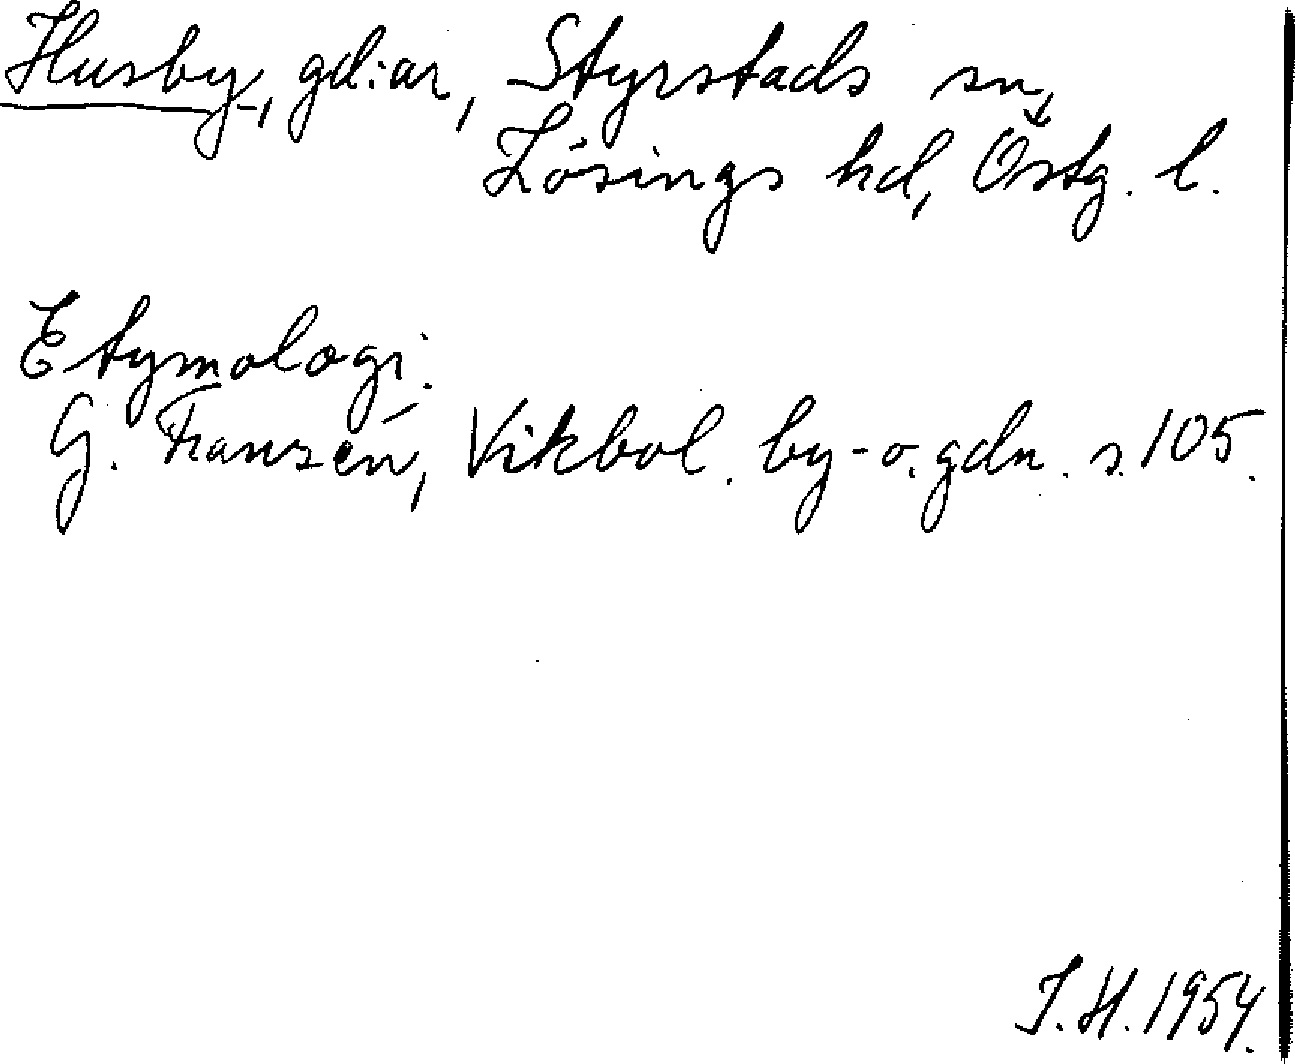 Husby, gd:ar, Styrstads sn,
Lösings hd, Östg. l.
Etymologi.
G. Franzén, Vikbol. by- o. gdn. s. 105.
I.H. 1954.